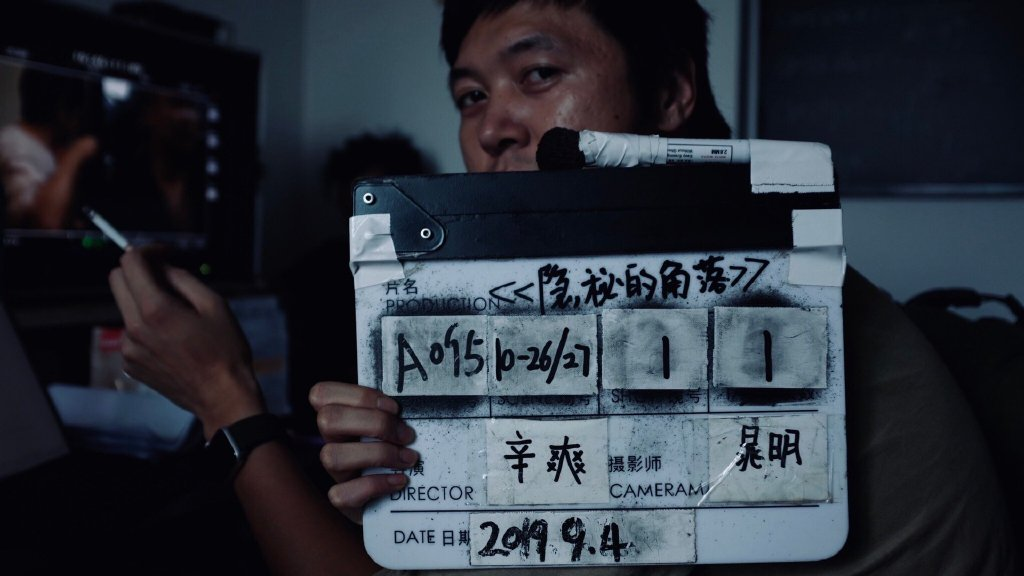 片名
PRODUCTION <<隐秘的角落>>
A095 10-26/27 1 1
导演 辛爽 摄影师 晁明
DIRECTOR CAMERAM
DATE 日期 2019 9.4